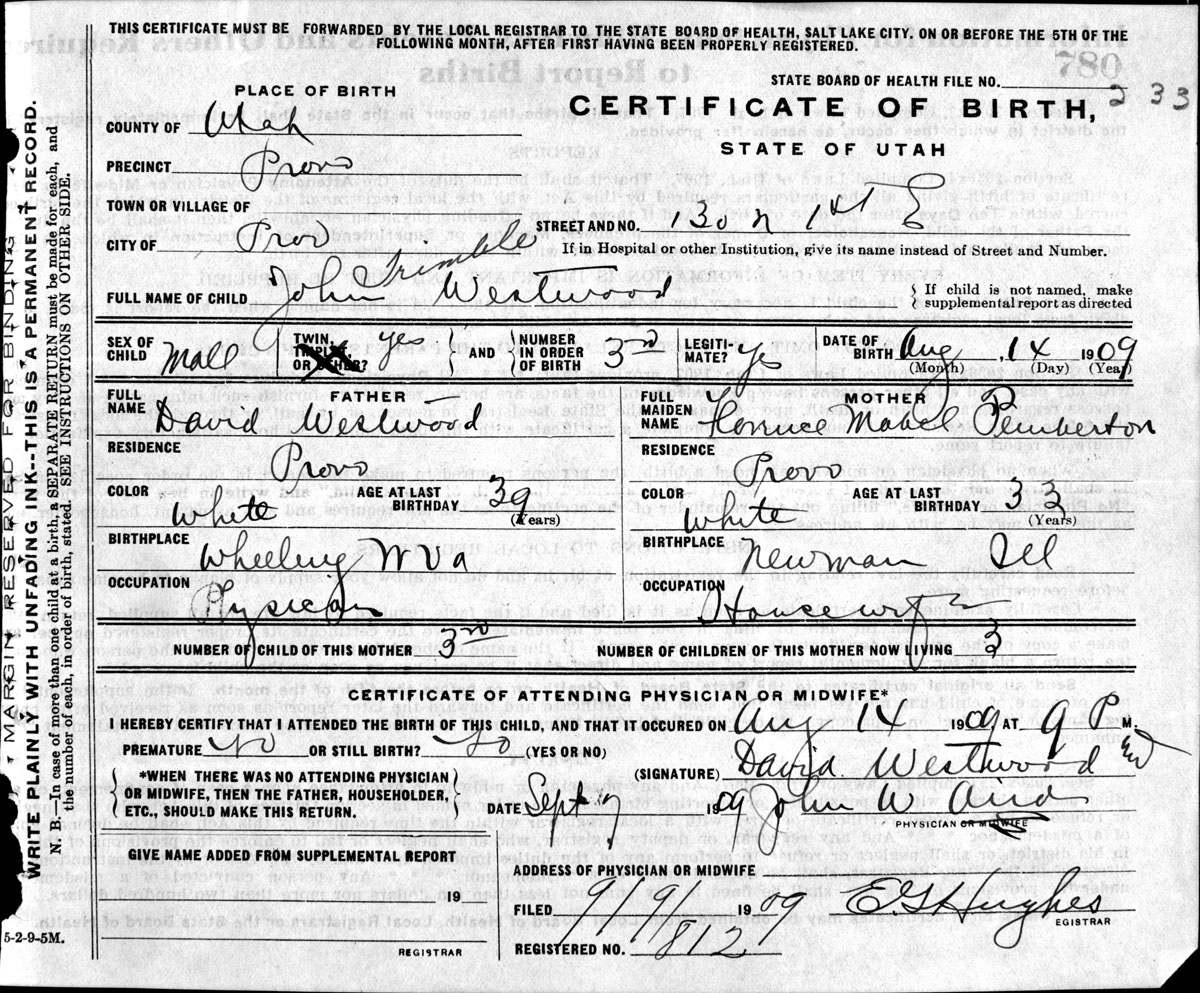 THIS CERTIFICATE MUST BE FORWARDED BY THE LOCAL REGISTRAR TO THE STATE BOARD OF HEALTH, SALT LAKE CITY. ON OR BEFORE THE 5TH OF THE
FOLLOWING MONTH, AFTER FIRST HAVING BEEN PROPERLY REGISTERED.
MARGIN RESERVED FOR BINDING
WRITE PLAINLY WITH UNFADING INK--THIS IS A PERMANENT RECORD.
N. B.--In case of more than one child at a birth, a SEPARATE RETURN must be made for each, and
the number of each, in order of birth, stated. SEE INSTRUCTIONS ON OTHER SIDE.
STATE BOARD OF HEALTH FILE NO. 233
PLACE OF BIRTH
CERTIFICATE OF BIRTH,
STATE OF UTAH
COUNTY OF Utah
PRECINCT Provo
TOWN OR VILLAGE OF
STREET AND NO. 30 N 1st E
CITY OF Provo
If in Hospital or other Institution, give its name instead of Street and Number.
FULL NAME OF CHILD John Trimble Westwood
If child is not named, make
supplemental report as directed
SEX OF CHILD Mall
TWIN, TRIPLET, OR OTHER? yes
AND NUMBER IN ORDER OF BIRTH 3rd
LEGITIMATE? yes
DATE OF BIRTH Aug, 14 1909
(Month) (Day) (Year)
FATHER
FULL NAME David Westwood
RESIDENCE Provo
COLOR White AGE AT LAST BIRTHDAY 39
(Years)
BIRTHPLACE Wheeling W Va
OCCUPATION Pysician
MOTHER
FULL MAIDEN NAME Florence Mabel Pemberton
RESIDENCE Provo
COLOR White AGE AT LAST BIRTHDAY 33
(Years)
BIRTHPLACE Newman Ill
OCCUPATION Housewife
NUMBER OF CHILD OF THIS MOTHER 3rd
NUMBER OF CHILDREN OF THIS MOTHER NOW LIVING 3
CERTIFICATE OF ATTENDING PHYSICIAN OR MIDWIFE*
I HEREBY CERTIFY THAT I ATTENDED THE BIRTH OF THIS CHILD, AND THAT IT OCCURRED ON Aug 14 1909 AT 9 P M.
PREMATURE No OR STILL BIRTH? No (YES OR NO)
*WHEN THERE WAS NO ATTENDING PHYSICIAN
OR MIDWIFE, THEN THE FATHER, HOUSEHOLDER,
ETC., SHOULD MAKE THIS RETURN.
(SIGNATURE) David Westwood MD
DATE Sept 1909 John W. Aird
PHYSICIAN OR MIDWIFE
GIVE NAME ADDED FROM SUPPLEMENTAL REPORT
19
REGISTRAR
ADDRESS OF PHYSICIAN OR MIDWIFE
FILED 9/9/ 1909 E G Hughes
REGISTRAR
REGISTERED NO. 812
5-2-9-5M.